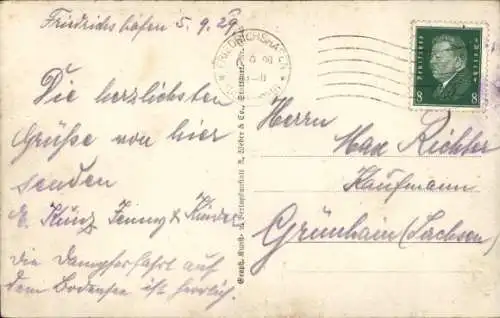 Friedrichshafen 5.9.29.
Die herzlichsten
Grüße von hier
senden
E. Kunz Jenny & Kinder
die Dampferfahrt auf
dem Bodensee ist herrlich.
FRIEDRICHSHAFEN
Graph. Kunst- u. Verlagsanstalt A. Weber & Co., Stuttgart
Deutsches Reich
8 8
Herrn
Max Richter
Kaufmann
Grünhain (Sachsen)